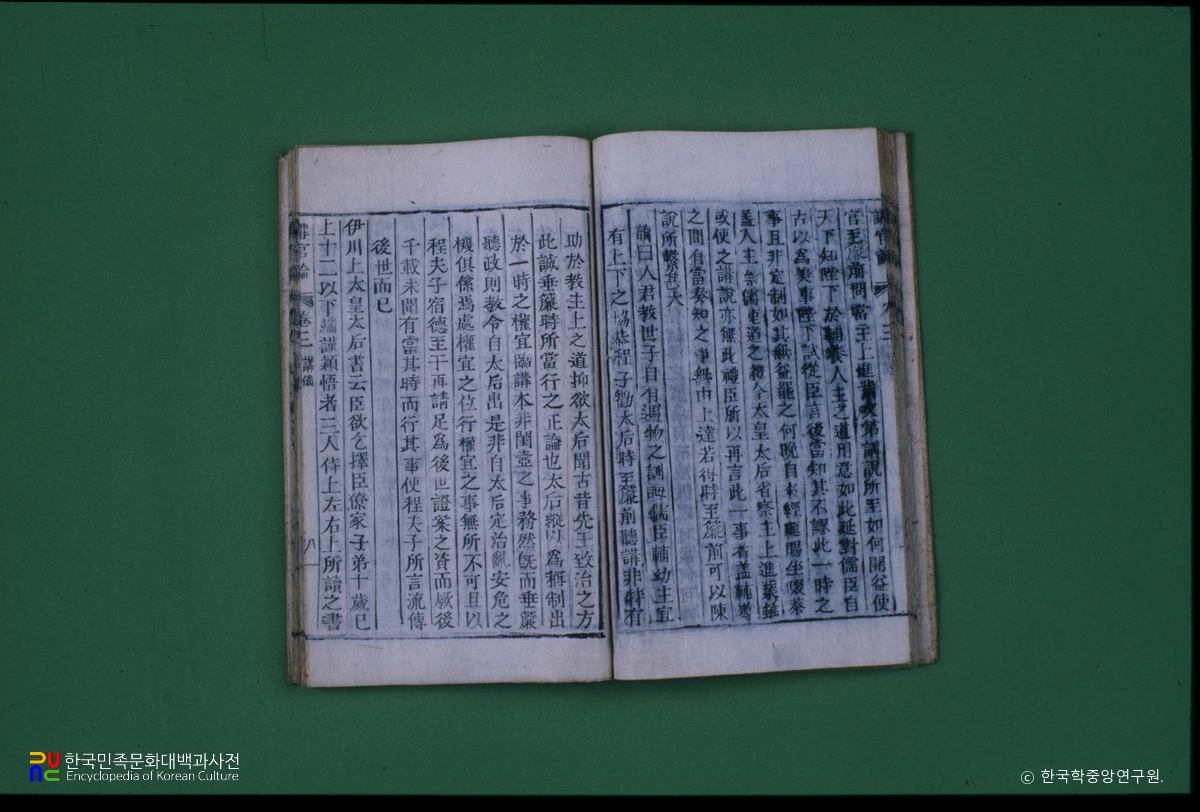 講官論 卷三
官至簾前問當主上進業次第講說所至如何開益使
天下知陛下於輔養人主之道用意如此延對儒臣自
古以爲美事陛下試從臣言後當知其不謬此一時之
事且非定制如其無益罷之何晚自來經筵賜坐啜茶
盖人主崇儒重道之禮今太皇太后省察主上進業雖
或使之講說亦無此禮臣所以再言此一事者盖輔導
之間有當奏知之事無由上達若得時至簾前可以陳
說所繫甚大
論曰人君教世子自有遇物之訓誨儒臣輔幼主宜
有上下之協恭程子勸太后時至簾前聽講非特有
助於教主上之道抑欲太后聞古昔先王致治之方
此誠垂簾時所當行之正論也太后縱以爲稱制出
於一時之權宜臨講本非閨壼之事務然旣而垂簾
聽政則教令自太后出是非自太后定治亂安危之
機俱係焉處權宜之位行權宜之事無所不可且以
程夫子宿德至于再請足爲後世證案之資而厥後
千載未聞有當其時而行其事使程夫子所言流傳
後世而已
伊川上太皇太后書云臣欲乞擇臣僚家子弟十歲已
上十二以下端謹穎悟者三人侍上左右上所讀之書
講官論 卷三 講儀 八
한국민족문화대백과사전
Encyclopedia of Korean Culture
© 한국학중앙연구원.